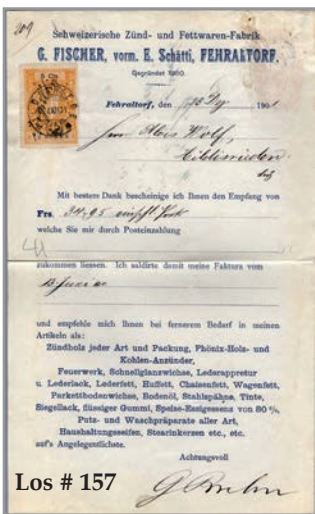 209
Schweizerische Zünd- und Fettwaren-Fabrik
G. FISCHER, vorm. E. Schätti, FEHRALTORF.
Gegründet 1860.
Fehraltorf, den 190
Herrn Alois Wolf,
Mit bestem Dank bescheinige ich Ihnen den Empfang von
Frs. 34.95
welche Sie mir durch Posteinzahlung
zukommen liessen. Ich saldirte damit meine Faktura vom
und empfehle mich Ihnen bei fernerem Bedarf in meinen
Artikeln als:
Zündholz jeder Art und Packung, Phönix-Holz- und
Kohlen-Anzünder,
Feuerwerk, Schnellglanzwichse, Lederappretur
u. Lederlack, Lederfett, Huffett, Chaisenfett, Wagenfett,
Parkettbodenwichse, Bodenöl, Stahlspähne, Tinte,
Siegellack, flüssiger Gummi, Speise-Essigessenz von 80 %,
Putz- und Waschpräparate aller Art,
Haushaltungsseifen, Stearinkerzen etc., etc.
auf's Angelegentlichste.
Achtungsvoll
Los # 157